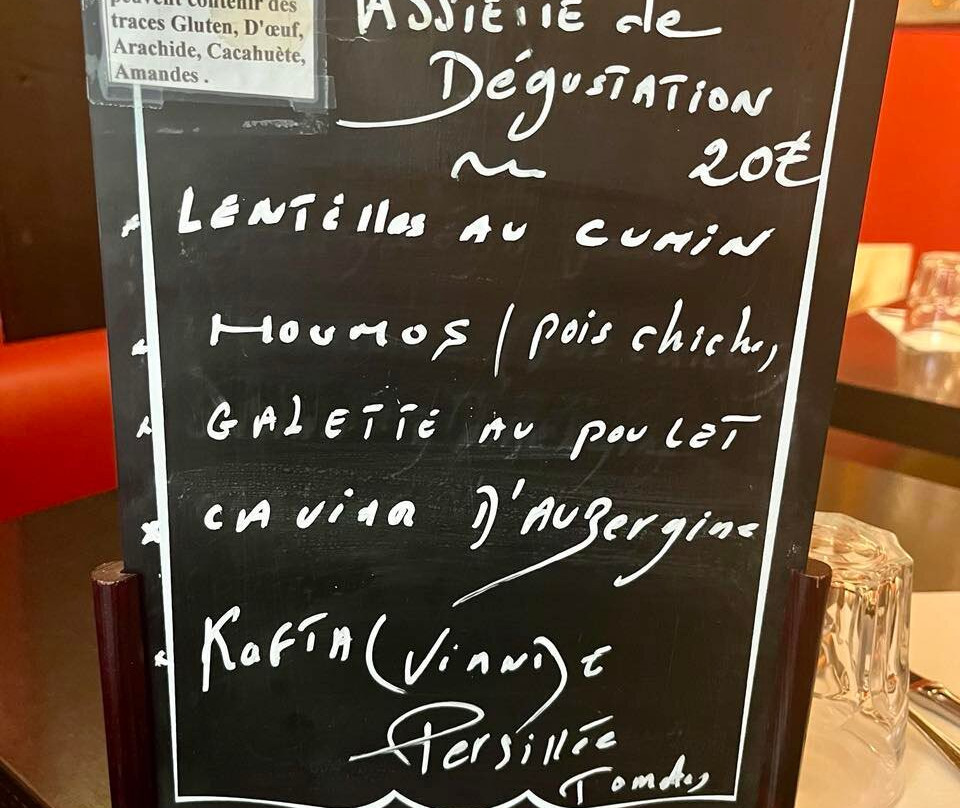 peuvent contenir des
traces Gluten, D'œuf,
Arachide, Cacahuète,
Amandes .
ASSIETTE de
DégustATION
20€
LENTilles AU CUMIN
HOUMOS / pois chiche,
GALETTE AU POULET
CAviar D'AuBergine
KofTA (Viande)
Persillée
Tomates